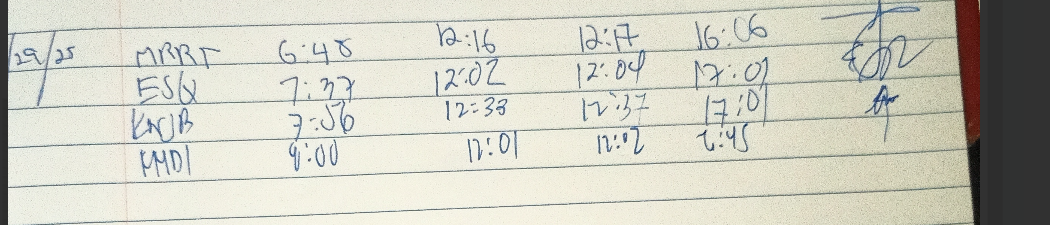 /29/25 MRRT 6:48 12:16 12:17 16:06
ESQ 7:37 12:02 12:04 17:01
KNJB 7:56 12:33 12:37 17:01
MMDI 8:00 12:01 12:02 2:45